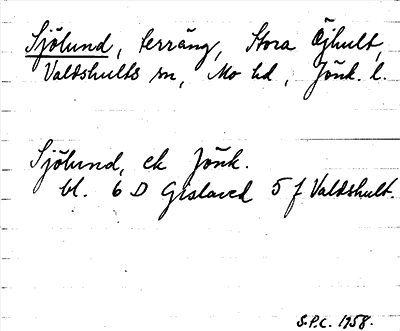 Sjölund, terräng, Stora Öjhult,
Valdshults sn, Mo hd, Jönk. l.
Sjölund, ek Jönk.
bl. 6 D Gislaved 5 f Valdshult.
S.P.C. 1958.